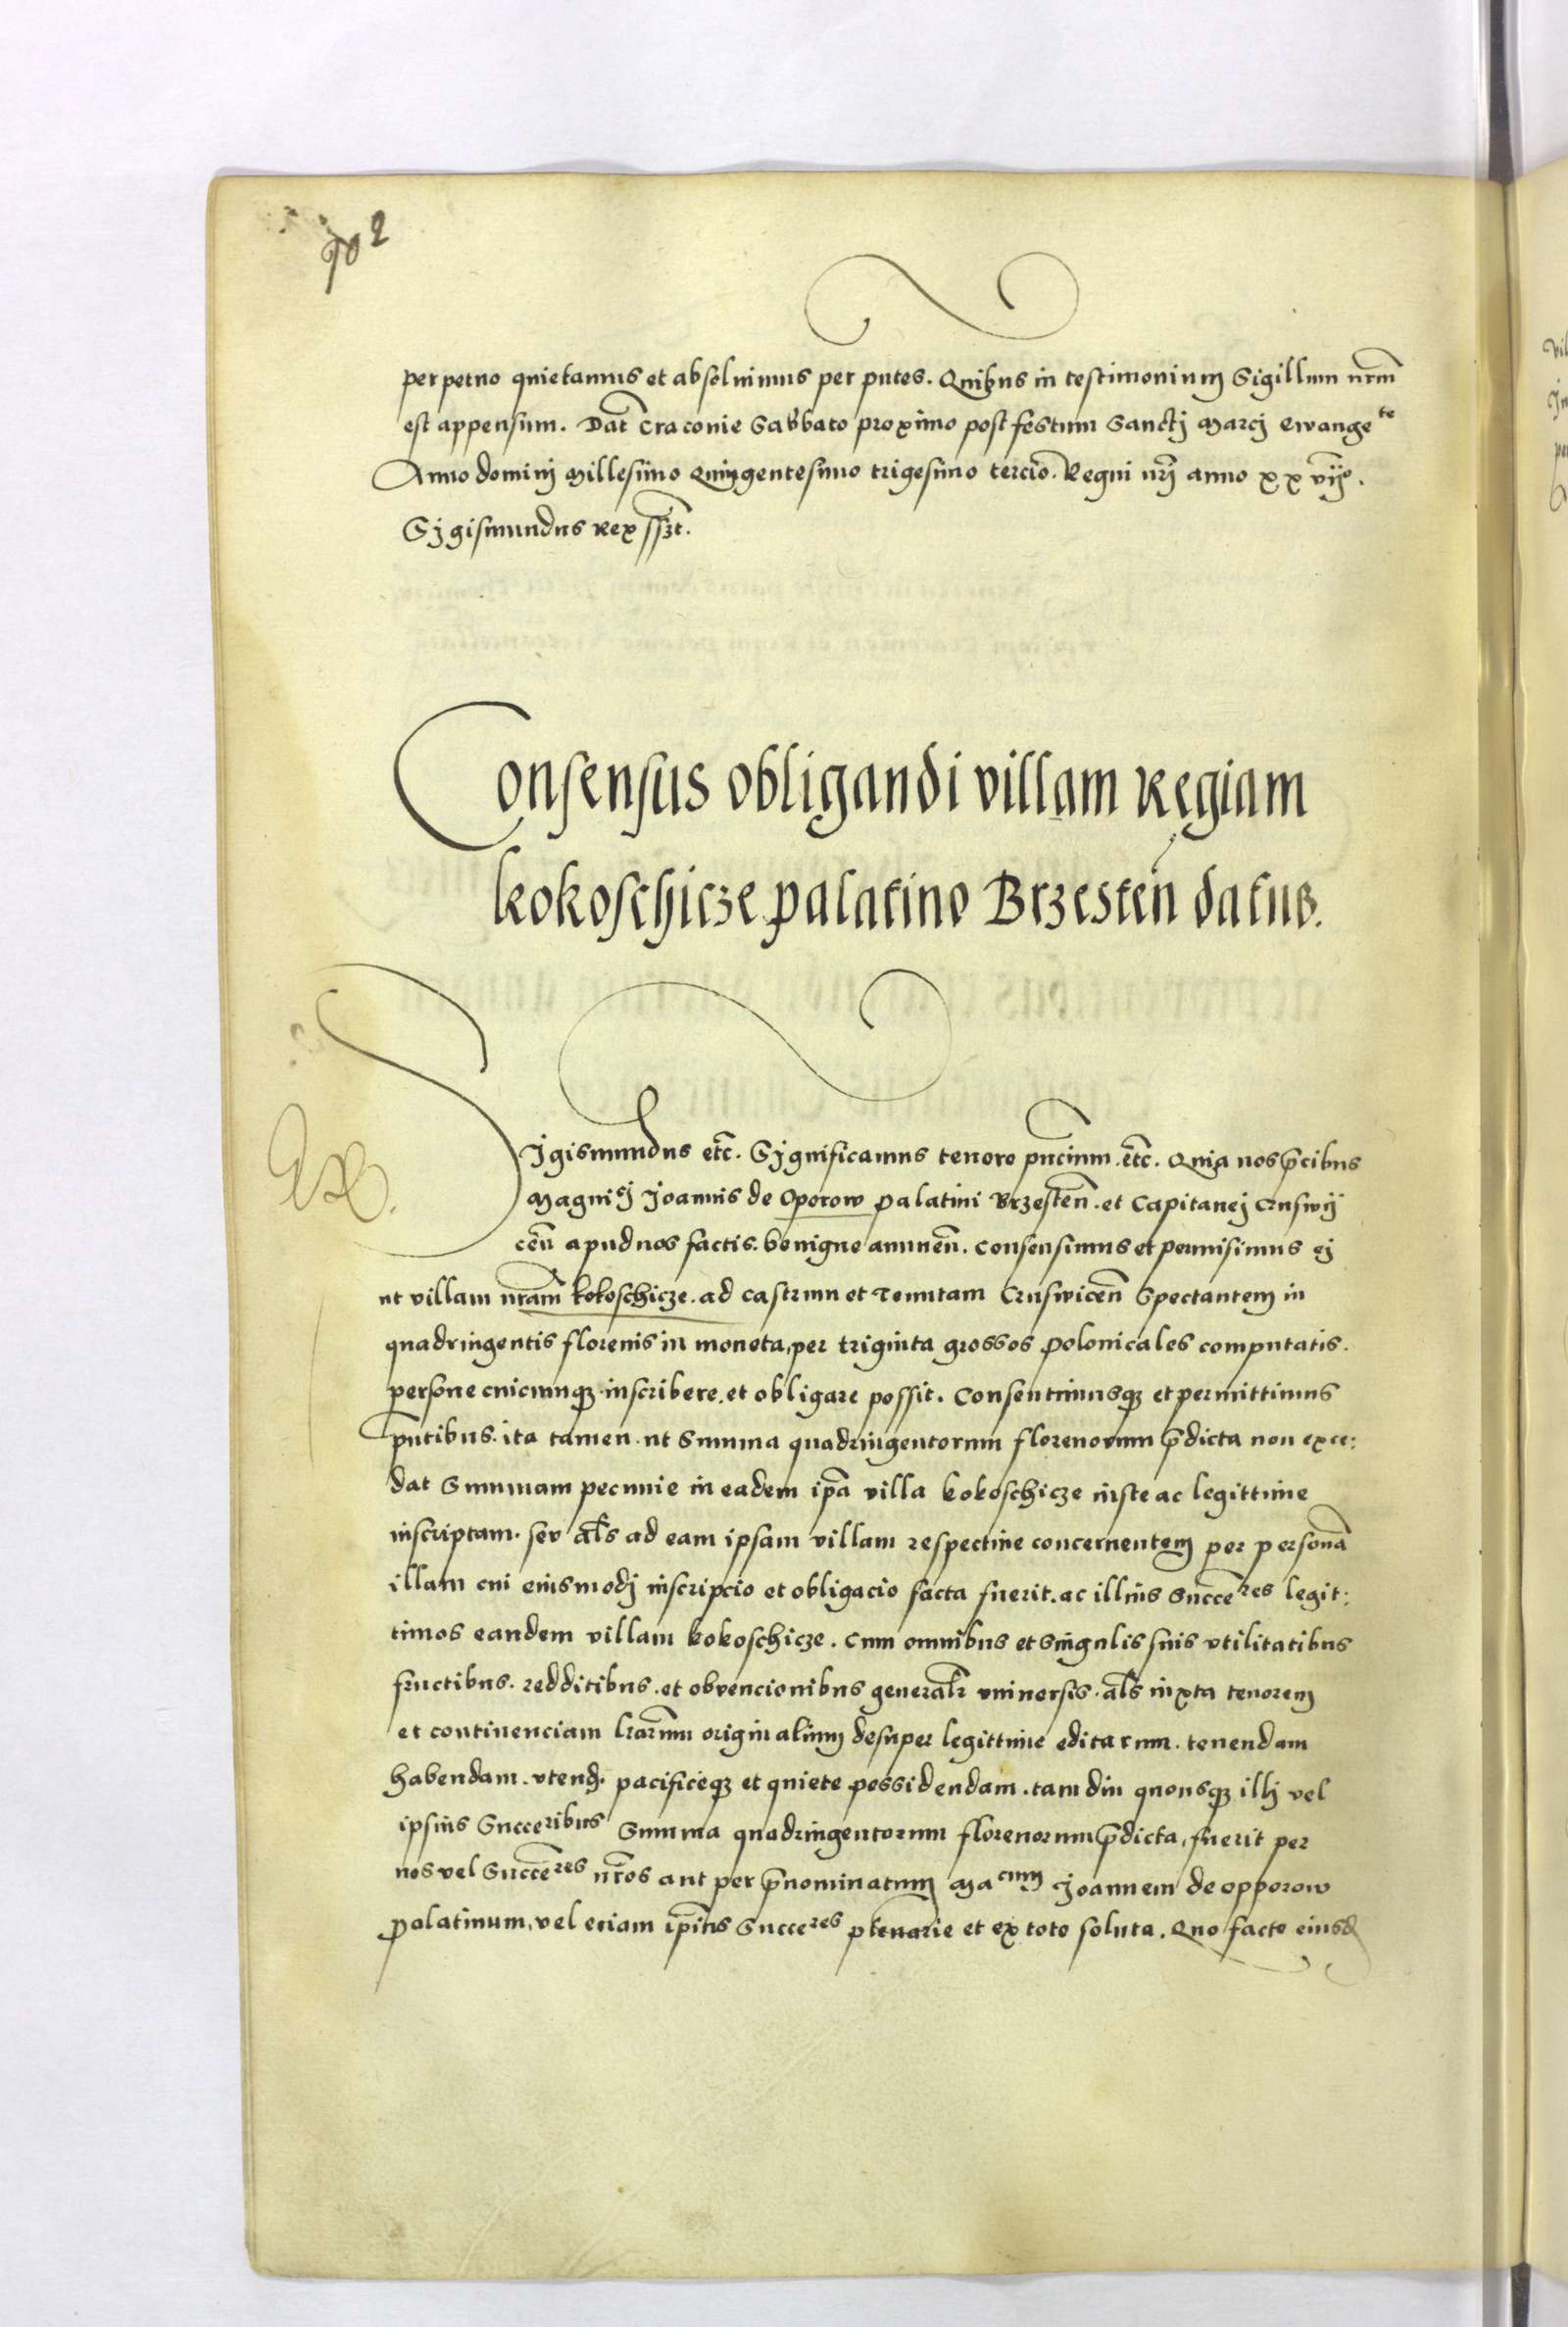 702
perpetuo quietamus et absoluimus per pntes. Quibus in testimonium Sigillum nrm
est appensum. Dat Craconie Sabbato proximo post festum Sanctj Marcj Ewangete
Anno dominj Millesimo Quingentesimo trigesimo tercio. Regni nrj anno xxvijo.
Sÿgismundus Rex sszt.
Consensus obligandi villam Regiam
kokoschicze palatino Brzesten datus.
Sigismundus etc. Sÿgnificamus tenore pncium. etc. Quia nos pcibus
Magnicj Joannis de Oporow palatini Brzesten. et Capitanej Cruswÿ
cen apud nos factis. benigne annuen. consensimus et permisimus ej
ut villam nram kokoschicze. ad castrum et Tenutam Cruswicen Spectantem in
quadringentis florenis in moneta, per triginta grossos polonicales computatis.
persone cuicunqz inscribere. et obligare possit. Consentimusqz et permittimus
pntibus. ita tamen. ut Summa quadringentorum florenorum pdicta non exce:
dat Summam pecunie in eadem ipa villa kokoschicze iuste ac legittime
inscriptam. seu als ad eam ipsam villam respectiue concernentem per persona
illam cui eiusmodj inscripcio et obligacio facta fuerit. ac illius Succeres legit:
timos eandem villam kokoschicze. cum omnibus et Singulis suis vtilitatibus
fructibus. redditibus. et obvencionibus generalr vniuersis. als iuxta tenorem
et continenciam lrarum originalium desuper legittime editarum. tenendam
habendam. vtend. pacificeqz et quiete possidendam. tam diu quousqz illj vel
ipsius Succeribus Summa quadringentorum florenorum pdicta, fuerit per
nos vel Succeres nros aut per pnominatum Macum Joannem de opporow
palatinum, vel eciam ipius Succeres plenarie et ex toto soluta. Quo facto eiusd